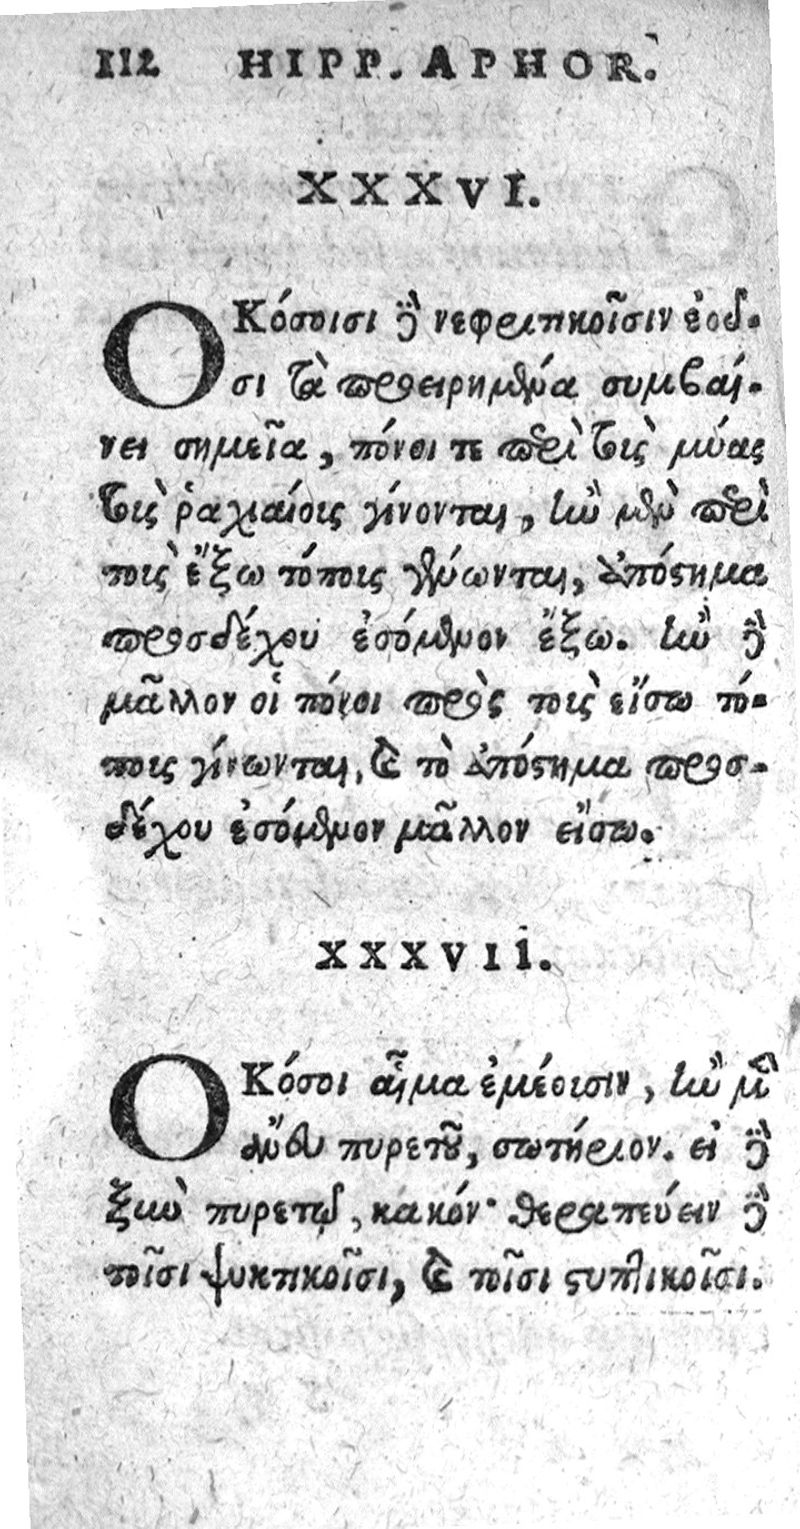 112 HIPP. APHOR.
XXXVI.
ΟΚόσοισι δὲ νεφριτικοῖσιν ἐοῦ-
σι τὰ προειρημένα συμβαί-
νει σημεῖα, πόνοι τε περὶ τοὺς μύας
τοὺς ῥαχιαίοις γίνονται, ἢν μὲν περὶ
τοὺς ἔξω τόποις γένωνται, ἀπόστημα
προσδέχου ἐσόμενον ἔξω. ἢν δὲ
μᾶλλον οἱ πόνοι πρὸς τοὺς εἴσω τό-
ποις γίνωνται, καὶ τὸ ἀπόστημα προσ-
δέχου ἐσόμενον μᾶλλον εἴσω.
XXXVII.
ΟΚόσοι αἷμα ἐμέοισιν, ἢν μὲν
ἄνευ πυρετοῦ, σωτήριον. εἰ δὲ
ξὺν πυρετῷ, κακόν· θεραπεύειν δὲ
τοῖσι ψυκτικοῖσι, καὶ τοῖσι στυπτικοῖσι.